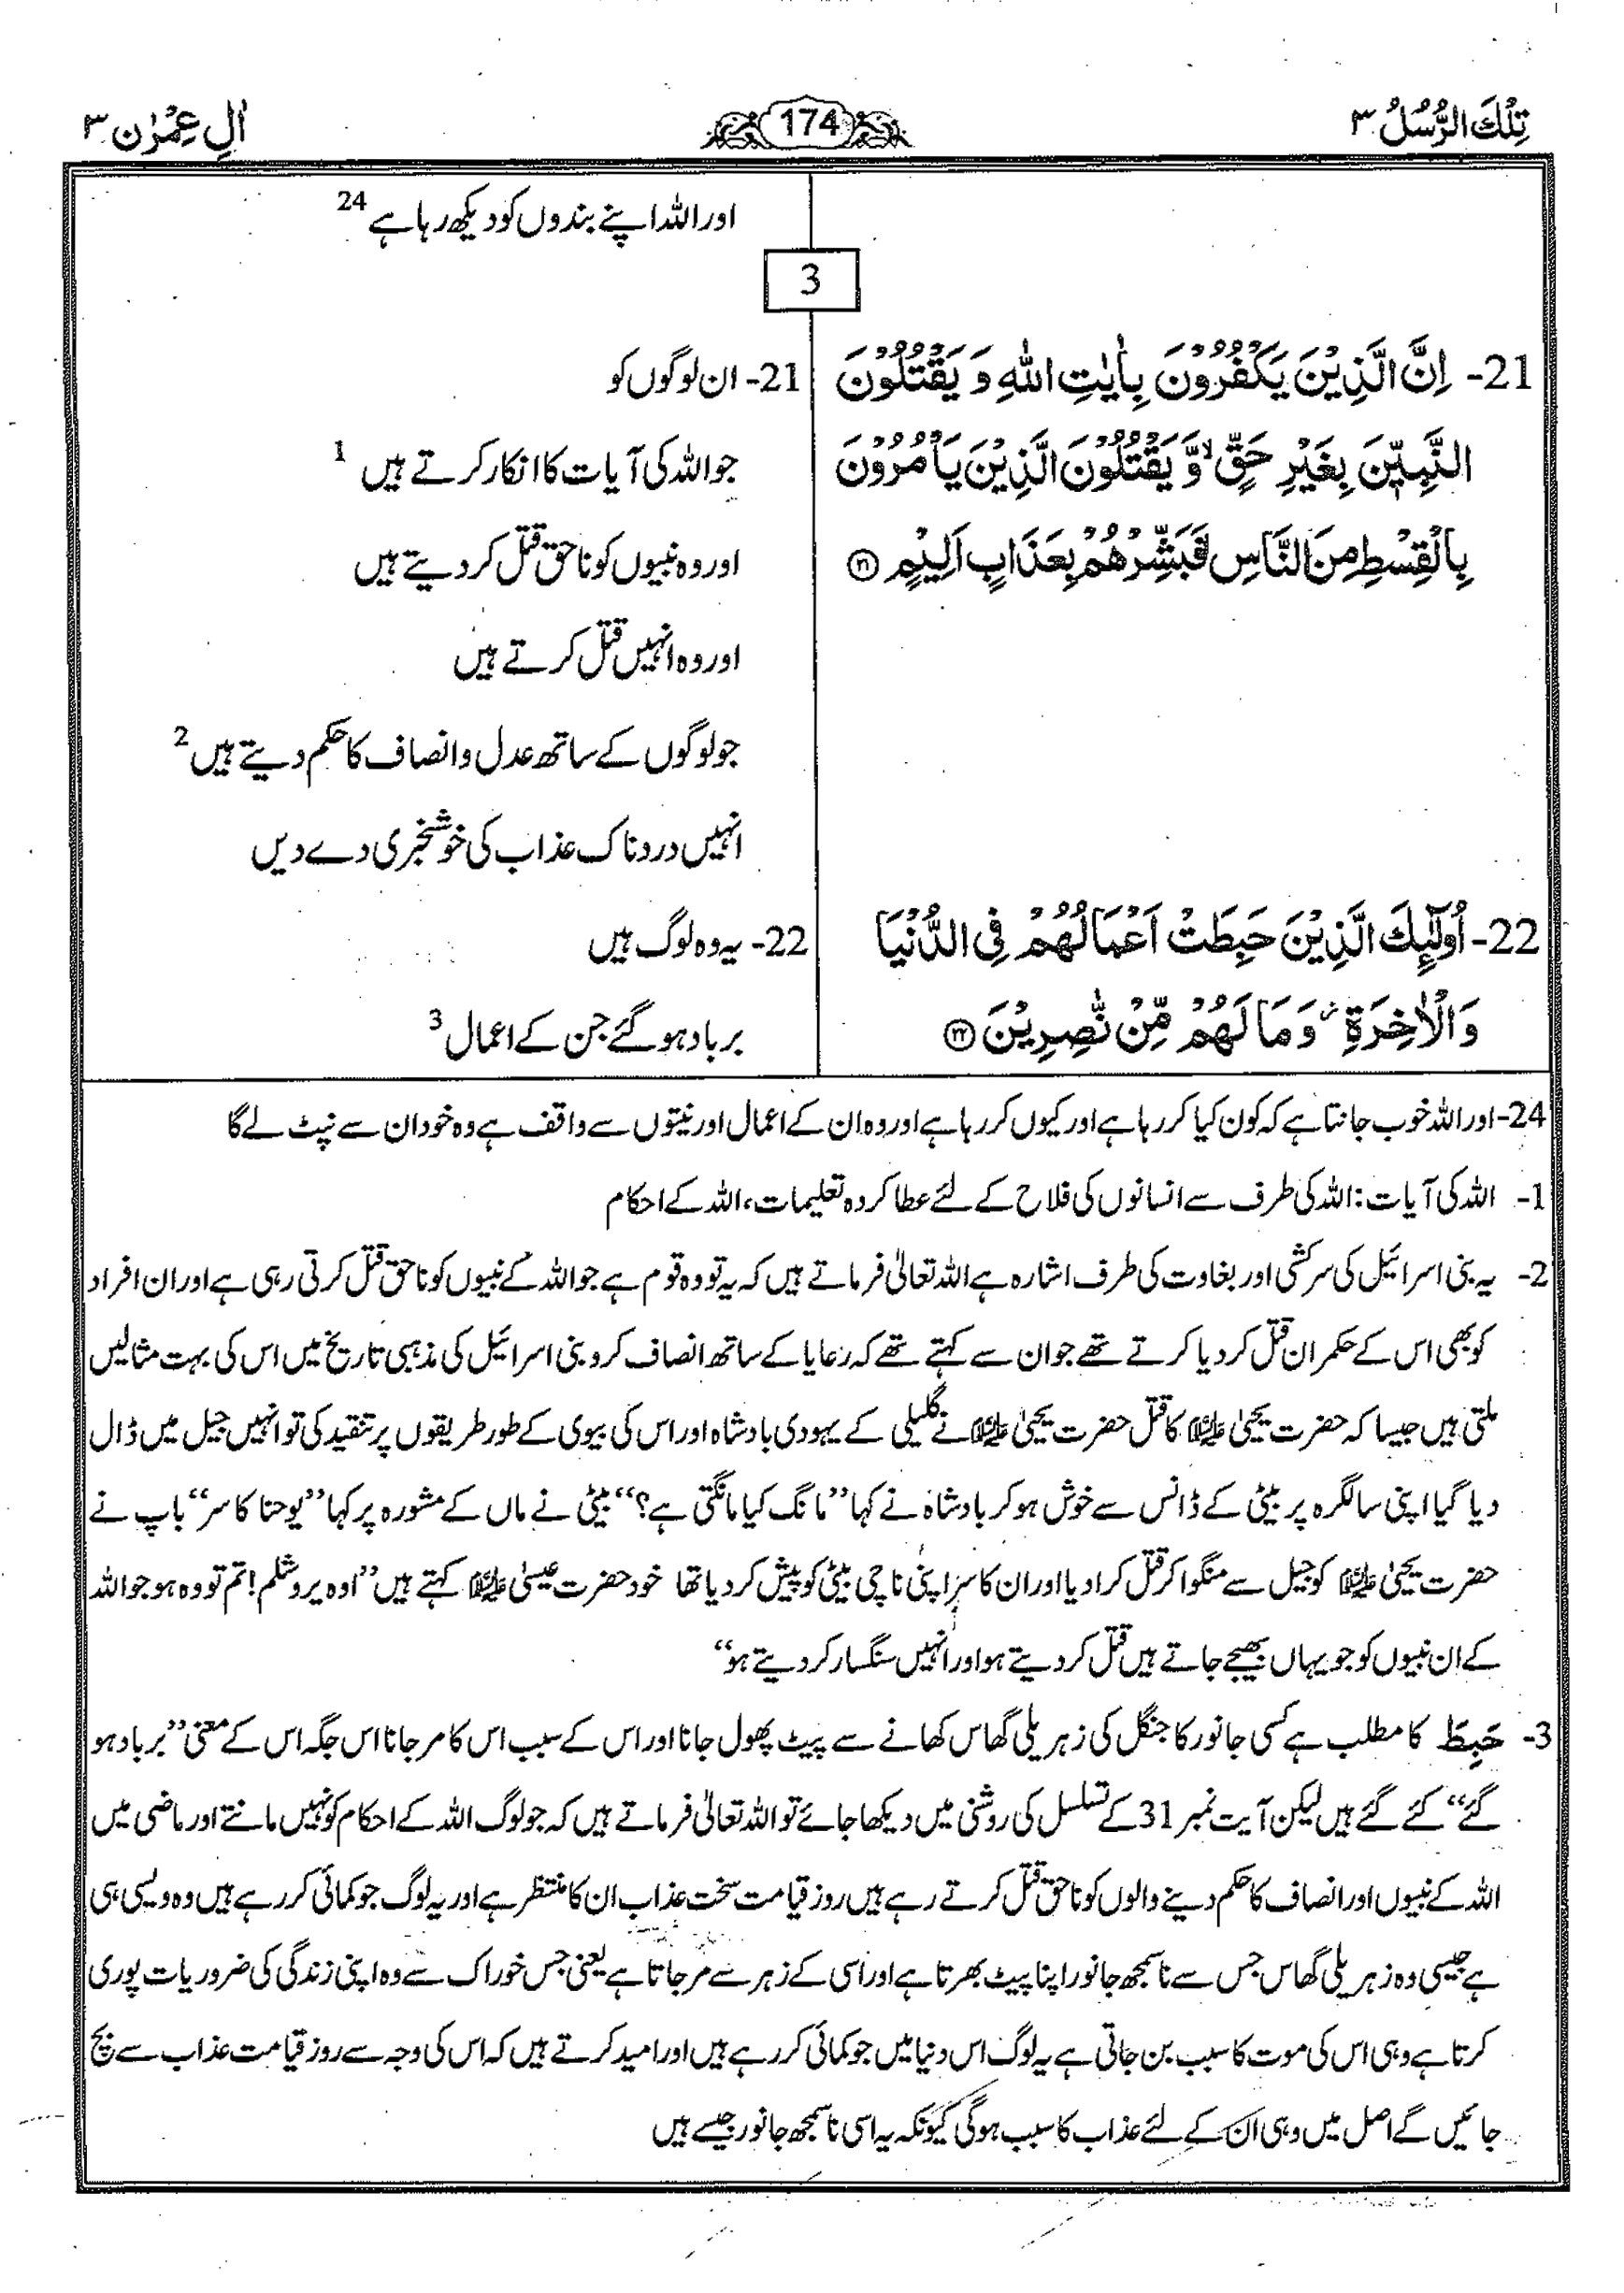 تِلْكَ الرُّسُلُ ٣
174
اٰلِ عِمْرٰن ٣
اور اللہ اپنے بندوں کو دیکھ رہا ہے 24
3
21- اِنَّ الَّذِيْنَ يَكْفُرُوْنَ بِاٰيٰتِ اللّٰهِ وَ يَقْتُلُوْنَ
النَّبِيّٖنَ بِغَيْرِ حَقٍّ ۙ وَّ يَقْتُلُوْنَ الَّذِيْنَ يَاْمُرُوْنَ
بِالْقِسْطِ مِنَ النَّاسِ فَبَشِّرْهُمْ بِعَذَابٍ اَلِيْمٍ ۝۲۱
21- ان لوگوں کو
جو اللہ کی آیات کا انکار کرتے ہیں 1
اور وہ نبیوں کو ناحق قتل کر دیتے ہیں
اور وہ انہیں قتل کرتے ہیں
جو لوگوں کے ساتھ عدل و انصاف کا حکم دیتے ہیں 2
انہیں دردناک عذاب کی خوشخبری دے دیں
22- اُولٰٓئِكَ الَّذِيْنَ حَبِطَتْ اَعْمَالُهُمْ فِي الدُّنْيَا
وَ الْاٰخِرَةِ ۫ وَ مَا لَهُمْ مِّنْ نّٰصِرِيْنَ ۝۲۲
22- یہ وہ لوگ ہیں
برباد ہو گئے جن کے اعمال 3
24- اور اللہ خوب جانتا ہے کہ کون کیا کر رہا ہے اور کیوں کر رہا ہے اور وہ ان کے اعمال اور نیتوں سے واقف ہے وہ خود ان سے نپٹ لے گا
1- اللہ کی آیات: اللہ کی طرف سے انسانوں کی فلاح کے لئے عطا کردہ تعلیمات، اللہ کے احکام
2- یہ بنی اسرائیل کی سرکشی اور بغاوت کی طرف اشارہ ہے اللہ تعالیٰ فرماتے ہیں کہ یہ تو وہ قوم ہے جو اللہ کے نبیوں کو ناحق قتل کرتی رہی ہے اور ان افراد
کو بھی اس کے حکمران قتل کر دیا کرتے تھے جو ان سے کہتے تھے کہ رعایا کے ساتھ انصاف کرو بنی اسرائیل کی مذہبی تاریخ میں اس کی بہت مثالیں
ملتی ہیں جیسا کہ حضرت یحییٰ علیہ السلام کا قتل حضرت یحییٰ علیہ السلام نے گلیلی کے یہودی بادشاہ اور اس کی بیوی کے طور طریقوں پر تنقید کی تو انہیں جیل میں ڈال
دیا گیا اپنی سالگرہ پر بیٹی کے ڈانس سے خوش ہو کر بادشاہ نے کہا ”مانگ کیا مانگتی ہے؟“ بیٹی نے ماں کے مشورہ پر کہا ”یوحنا کا سر“ باپ نے
حضرت یحییٰ علیہ السلام کو جیل سے منگوا کر قتل کرا دیا اور ان کا سر اپنی ناچی بیٹی کو پیش کر دیا تھا خود حضرت عیسیٰ علیہ السلام کہتے ہیں ”اوہ یروشلم! تم تو وہ ہو جو اللہ
کے ان نبیوں کو جو یہاں بھیجے جاتے ہیں قتل کر دیتے ہو اور انہیں سنگسار کر دیتے ہو“
3- حَبِطَ کا مطلب ہے کسی جانور کا جنگل کی زہریلی گھاس کھانے سے پیٹ پھول جانا اور اس کے سبب اس کا مر جانا اس جگہ اس کے معنی ”برباد ہو
گئے“ کئے گئے ہیں لیکن آیت نمبر 31 کے تسلسل کی روشنی میں دیکھا جائے تو اللہ تعالیٰ فرماتے ہیں کہ جو لوگ اللہ کے احکام کو نہیں مانتے اور ماضی میں
اللہ کے نبیوں اور انصاف کا حکم دینے والوں کو ناحق قتل کرتے رہے ہیں روز قیامت سخت عذاب ان کا منتظر ہے اور یہ لوگ جو کمائی کر رہے ہیں وہ ویسی ہی
ہے جیسی وہ زہریلی گھاس جس سے ناسمجھ جانور اپنا پیٹ بھرتا ہے اور اسی کے زہر سے مر جاتا ہے یعنی جس خوراک سے وہ اپنی زندگی کی ضروریات پوری
کرتا ہے وہی اس کی موت کا سبب بن جاتی ہے یہ لوگ اس دنیا میں جو کمائی کر رہے ہیں اور امید کرتے ہیں کہ اس کی وجہ سے روز قیامت عذاب سے بچ
جائیں گے اصل میں وہی ان کے لئے عذاب کا سبب ہوگی کیونکہ یہ اسی ناسمجھ جانور جیسے ہیں